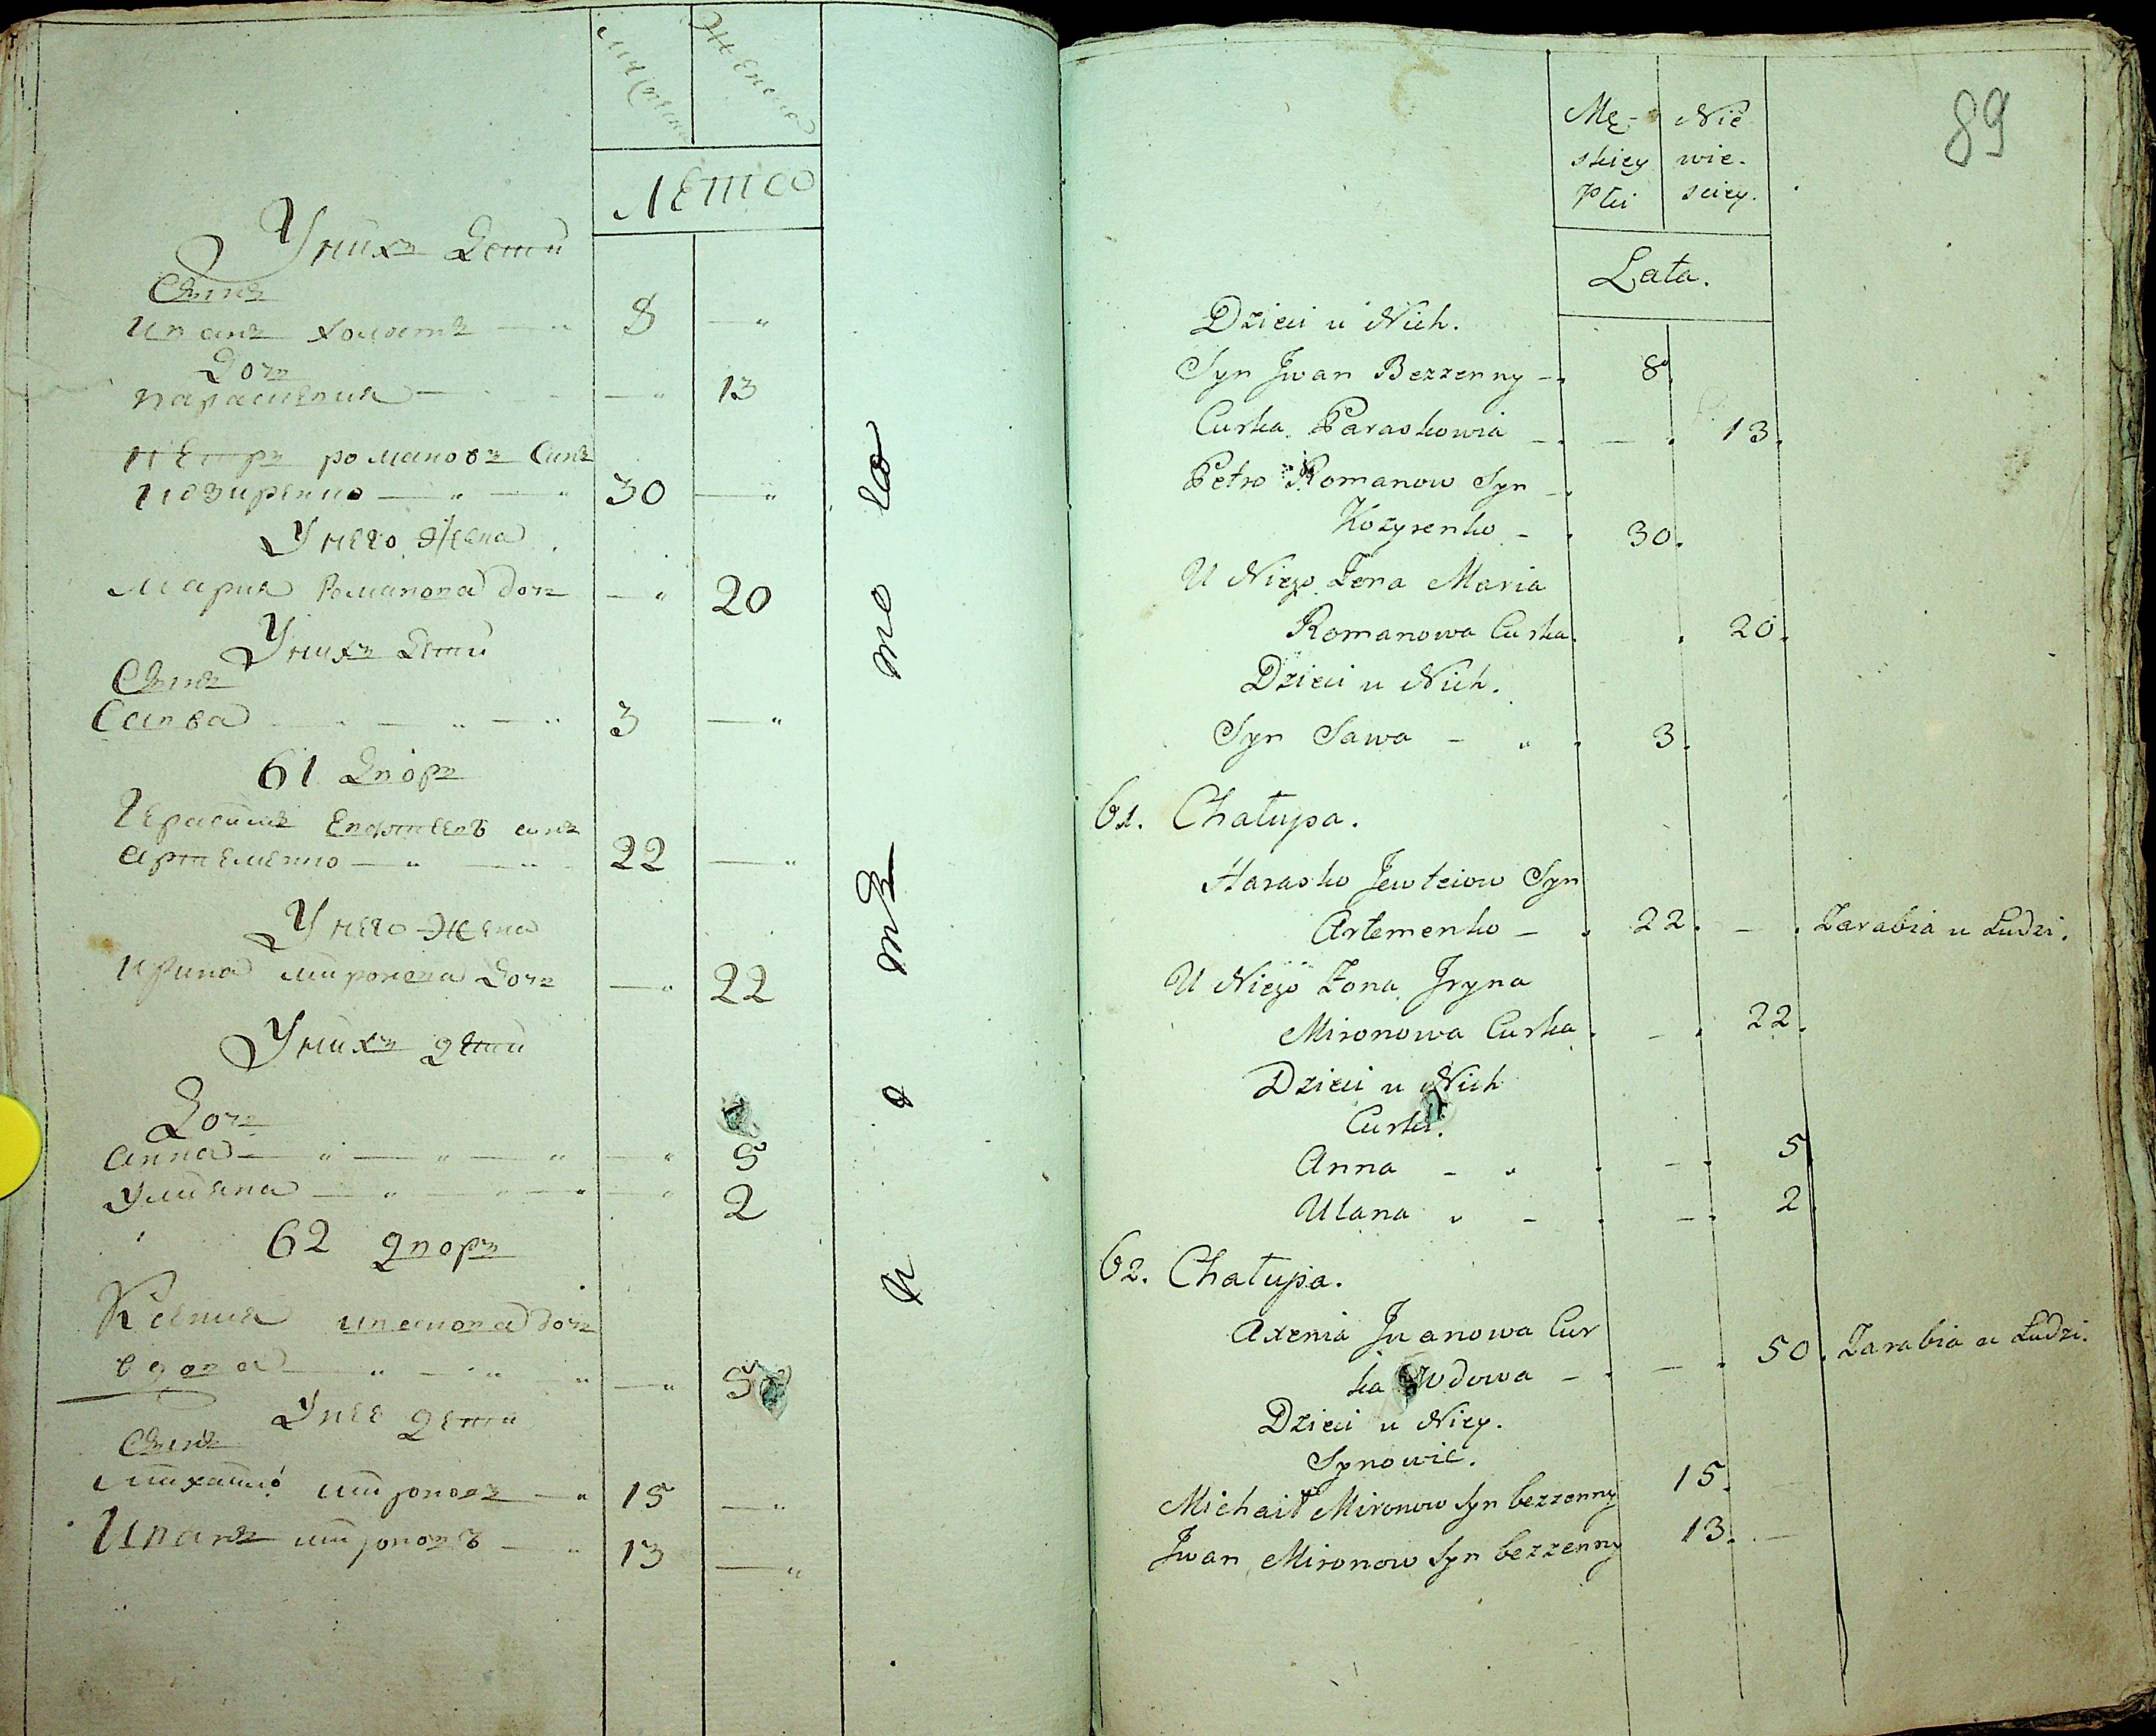 Мужеска
Женска
лето
У них дети
Синъ
Иванъ холостъ — „ 8 — „
Дочь
Параскевия — — — „ 13
Петръ романовъ Синъ
Козиренко — „ — „ 30 — „
У него Жена
Мария Романова дочь — „ 20
У нихъ Дети
Синъ
Савва — „ — „ — „ 3 — „
61 Дворъ
Герасимъ Евтиевъ синъ
Артеменко — „ — „ 22 — „
У него Жена
Ирина миронова Дочь — „ 22
У нихъ дети
Дочь
Анна — „ — „ — „ — „ 5
Улияна — „ — „ — „ — „ 2
62 дворъ
Ксения иванова дочь
вдова — „ — „ — „ — „ 50
У нее дети
Синъ
Михаило мироновъ — „ 15 — „
Иванъ мироновъ — „ 13 — „
89
Mę- Nie
skiey wie-
Płci sciey.
Lata.
Dzieci u Nich.
Syn Jwan Bezzenny — 8.
Curka Paraskowia — — 13.
Petro Romanow Syn —
Kozyrenko — 30.
U Niego Żona Maria
Romanowa Curka. 20.
Dzieci u Nich.
Syn Sawa — „ 3.
61. Chałupa.
Harasko Jewteiow Syn
Artemenko — 22. — Zarabia u Ludzi.
U Niego Żona Jryna
Mironowa Curka. — 22.
Dzieci u Nich
Curki.
Anna — „ — 5
Ulana „ — — 2.
62. Chałupa.
Axenia Jwanowa Cur
ka Wdowa — — 50. Zarabia u Ludzi.
Dzieci u Niey.
Synowie.
Michaił Mironow Syn bezzenny 15.
Jwan Mironow Syn bezzenny 13. —